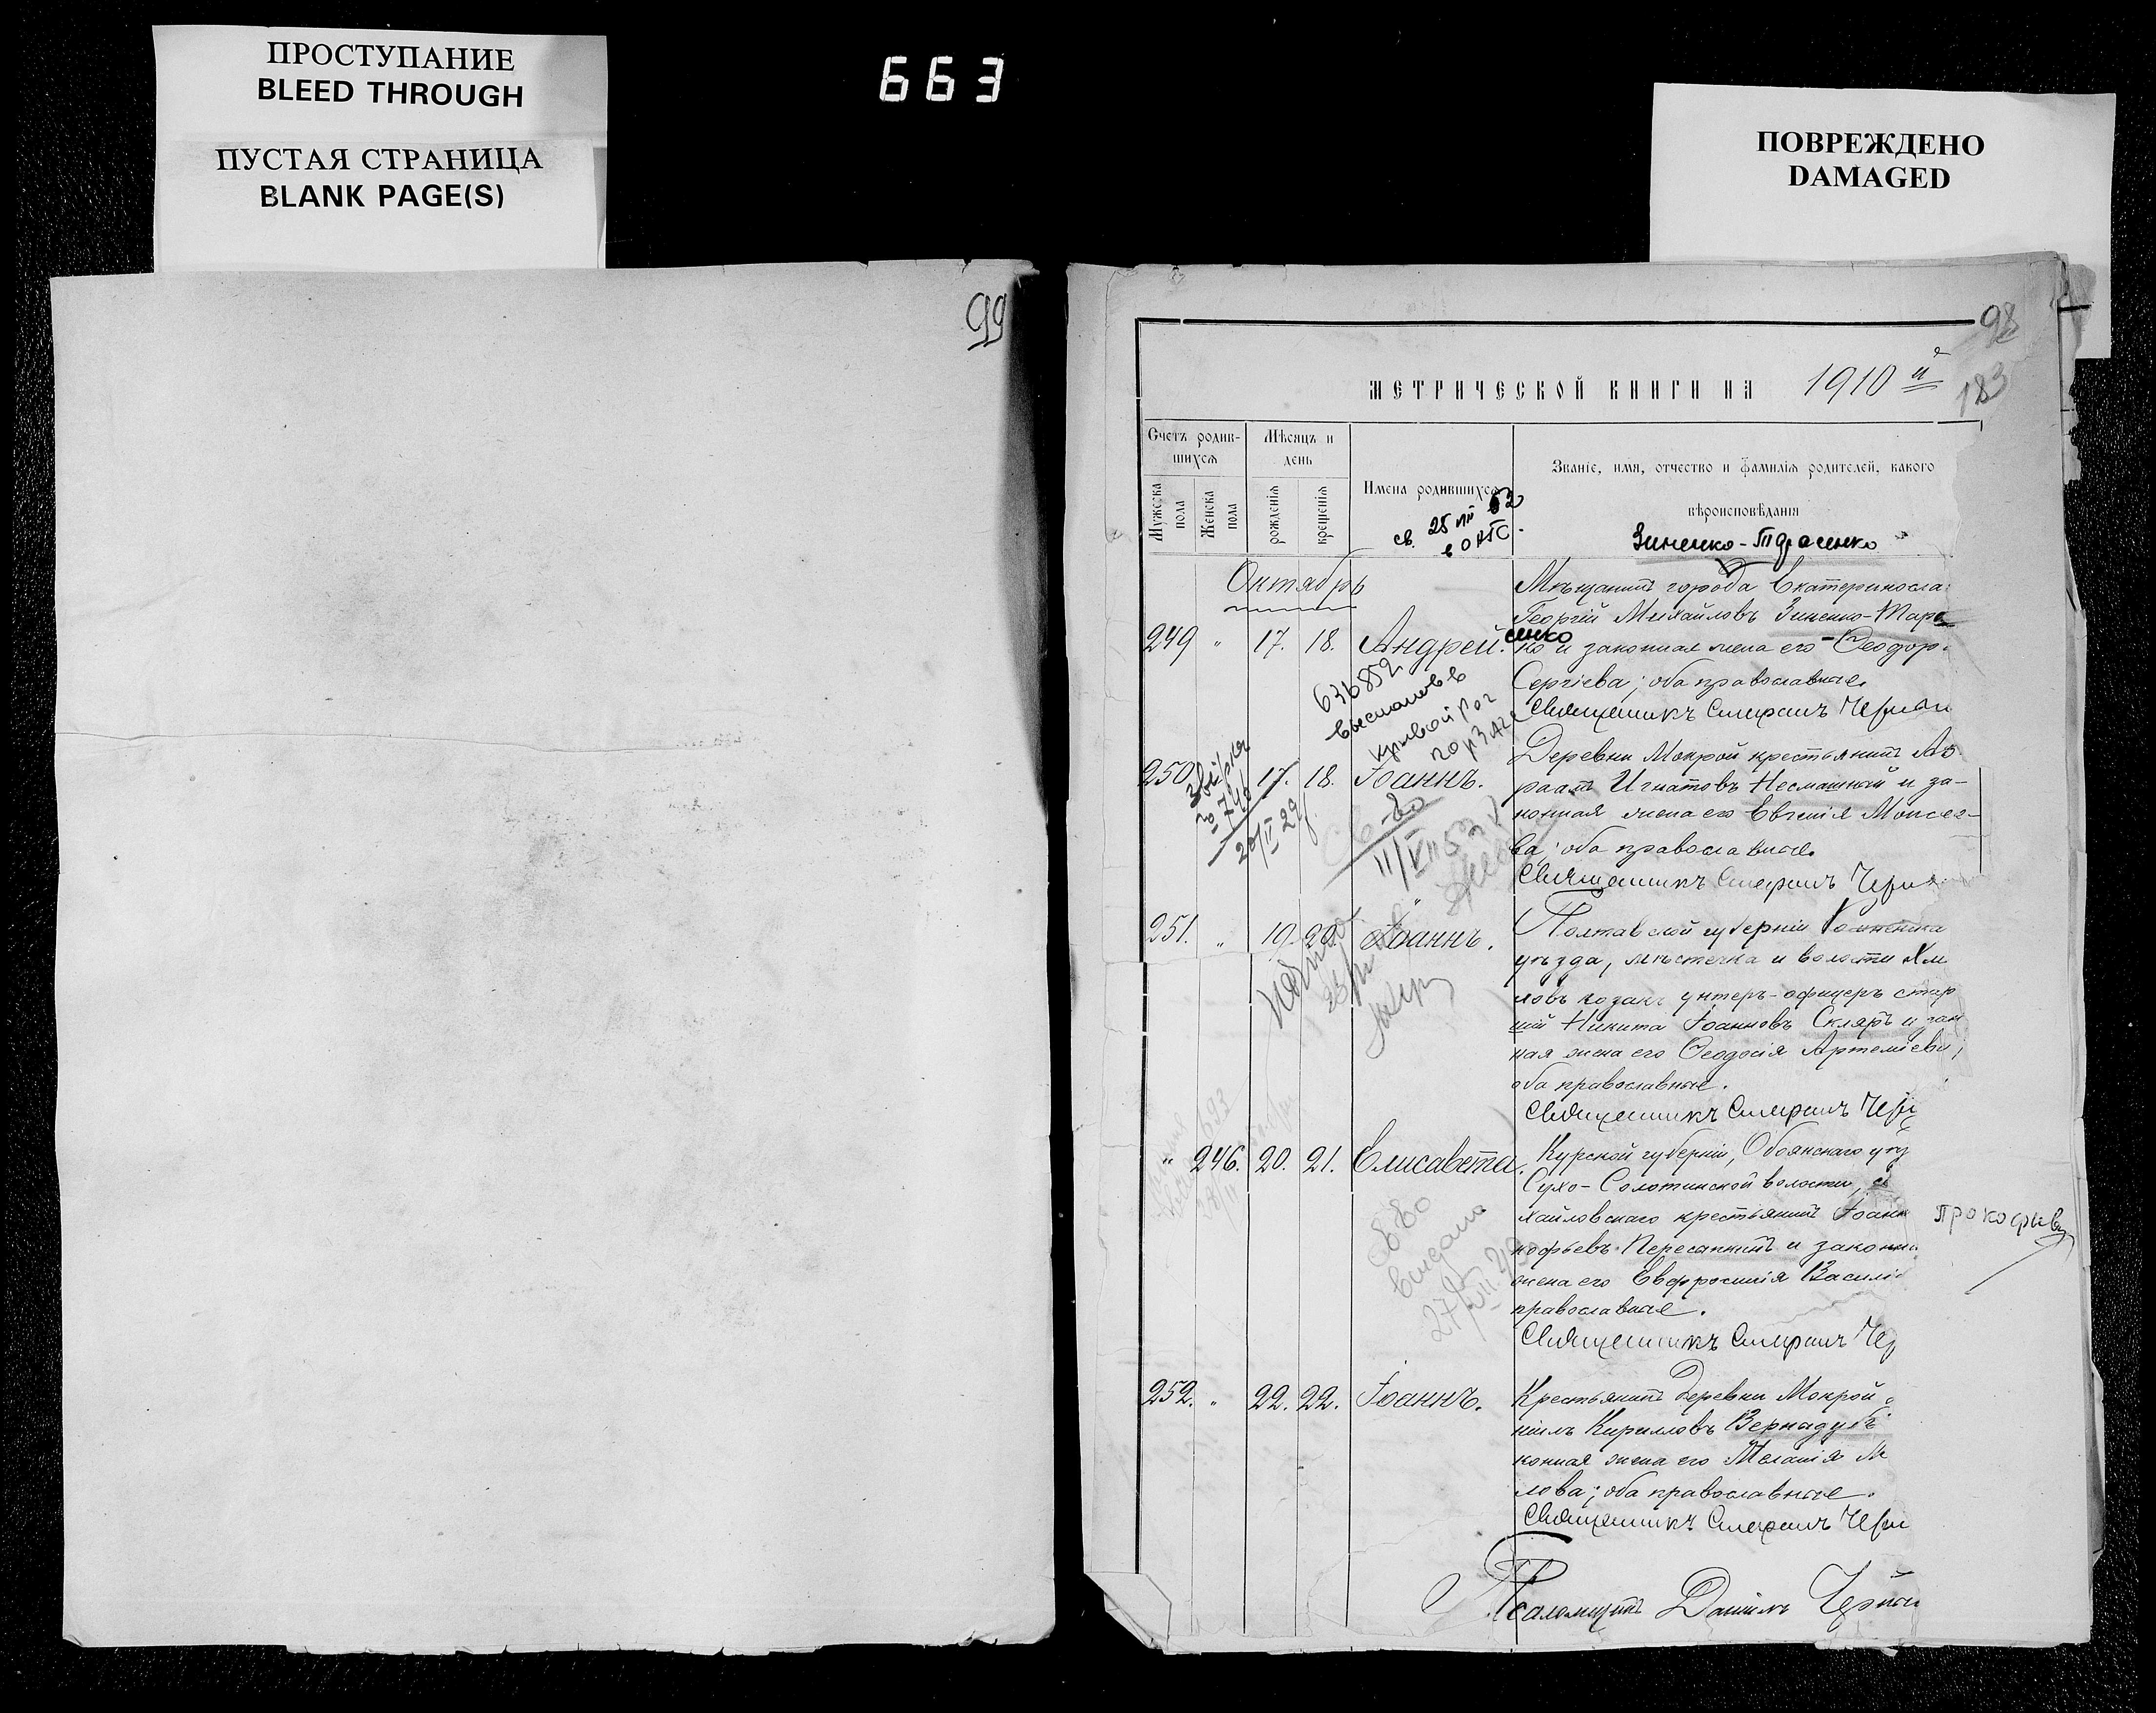 ПРОСТУПАНИЕ
BLEED THROUGH
ПУСТАЯ СТРАНИЦА
BLANK PAGE(S)
663
ПОВРЕЖДЕНО
DAMAGED
99
98
183
МЕТРИЧЕСКОЙ КНИГИ НА 1910 й
Счетъ родив-
шихся
Мужеска
пола
Женска
пола
Мѣсяцъ и
день
рожденія
крещенія
Имена родившихся
св. 25 VIII 52
Званіе, имя, отчество и фамилія родителей, какого
вѣроисповѣданія
Зиненко-Тарасенко
Октябрь
249 " 17. 18. Андрей.
Мѣщанинъ города Екатериносла
Георгій Михайловъ Зиненко-Тара
сенко
ко и законная жена его Ѳеодор
Сергіева; оба православные
Священникъ Симеонъ Черня
636852
Кривой Рог
250 17. 18. Іоаннъ.
28/II 29
Деревни Мокрой крестьянинъ Ав
раамъ Игнатовъ Несмашный и за-
конная жена его Евгенія Моисее-
ва; оба православные
Священникъ Симеонъ Черня
11/VII 53
251. " 19. 20. Іоаннъ.
Полтавской губерніи Роменскаго
уѣзда, мѣстечка и волости
ловъ козакъ унтеръ-офицеръ стар
шій Никита Іоанновъ Скляръ и зак
ная жена его Ѳеодосія Артеміева;
оба православные.
Священникъ Симеонъ Чер
" 246. 20. 21. Елисавета.
Курской губерніи, Обоянскаго уѣз
Сухо-Солотинской волости, с
хайловскаго крестьянинъ Іоанн
Прокофьев
кофьевъ Пересыпкинъ и законн
жена его Евфросинія Василі
православные.
Священникъ Симеонъ Чер
880
выдано
252. " 22. 22. Іоаннъ.
Крестьянинъ деревни Мокрой
ніилъ Кирилловъ Вернадубъ
конная жена его Меланія М
лова; оба православные.
Священникъ Симеонъ Черн
Псаломщикъ Даніилъ Черня